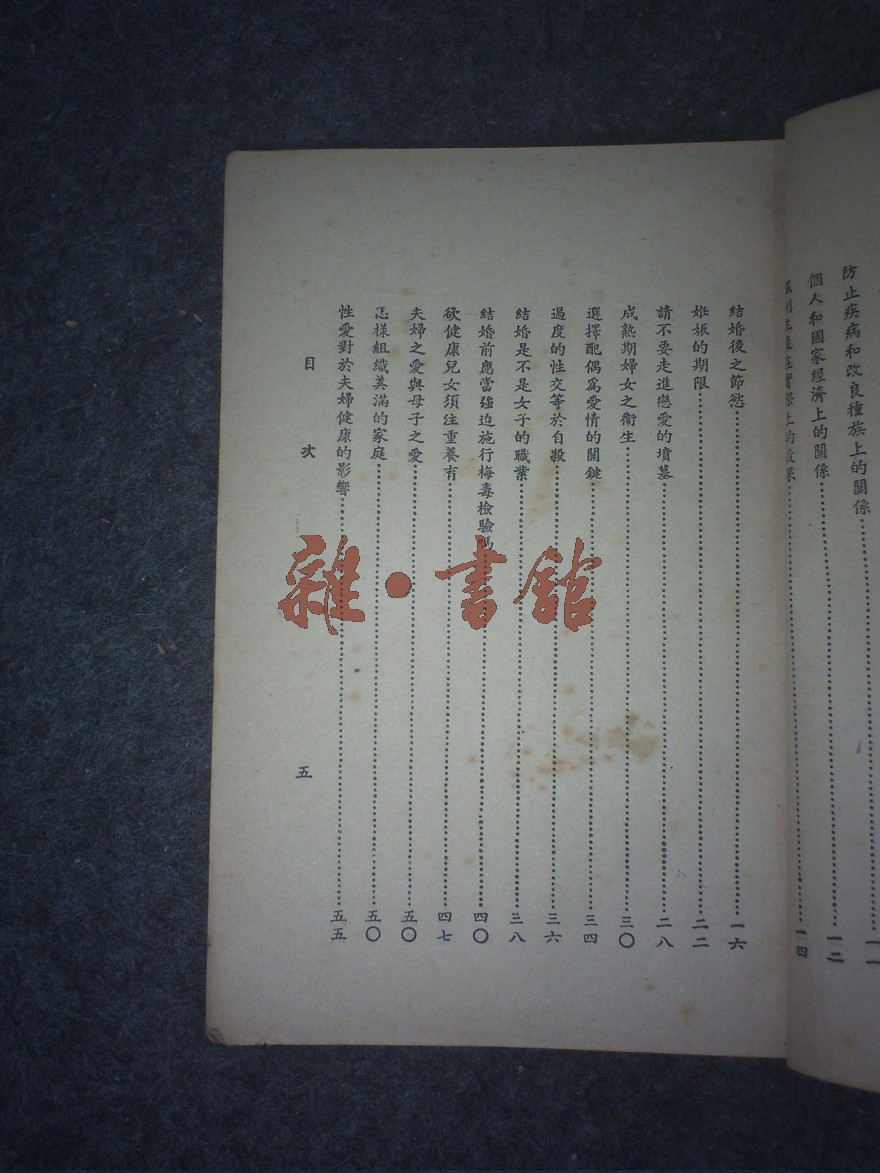 防止疾病和改良種族上的關係⋯⋯一一
個人和國家經濟上的關係⋯⋯一二
上的效果⋯⋯一四
結婚後之節慾⋯⋯一六
姙娠的期限⋯⋯二二
請不要走進戀愛的墳墓⋯⋯二八
成熟期婦女之衞生⋯⋯三〇
選擇配偶爲愛情的關鍵⋯⋯三四
過度的性交等於自殺⋯⋯三六
結婚是不是女子的職業⋯⋯三八
結婚前應當強迫施行梅毒檢驗嗎⋯⋯四〇
欲健康兒女須注重養育⋯⋯四七
夫婦之愛與母子之愛⋯⋯五〇
怎樣組織美滿的家庭⋯⋯五〇
性愛對於夫婦健康的影響⋯⋯五五
目次 五
雜·書館